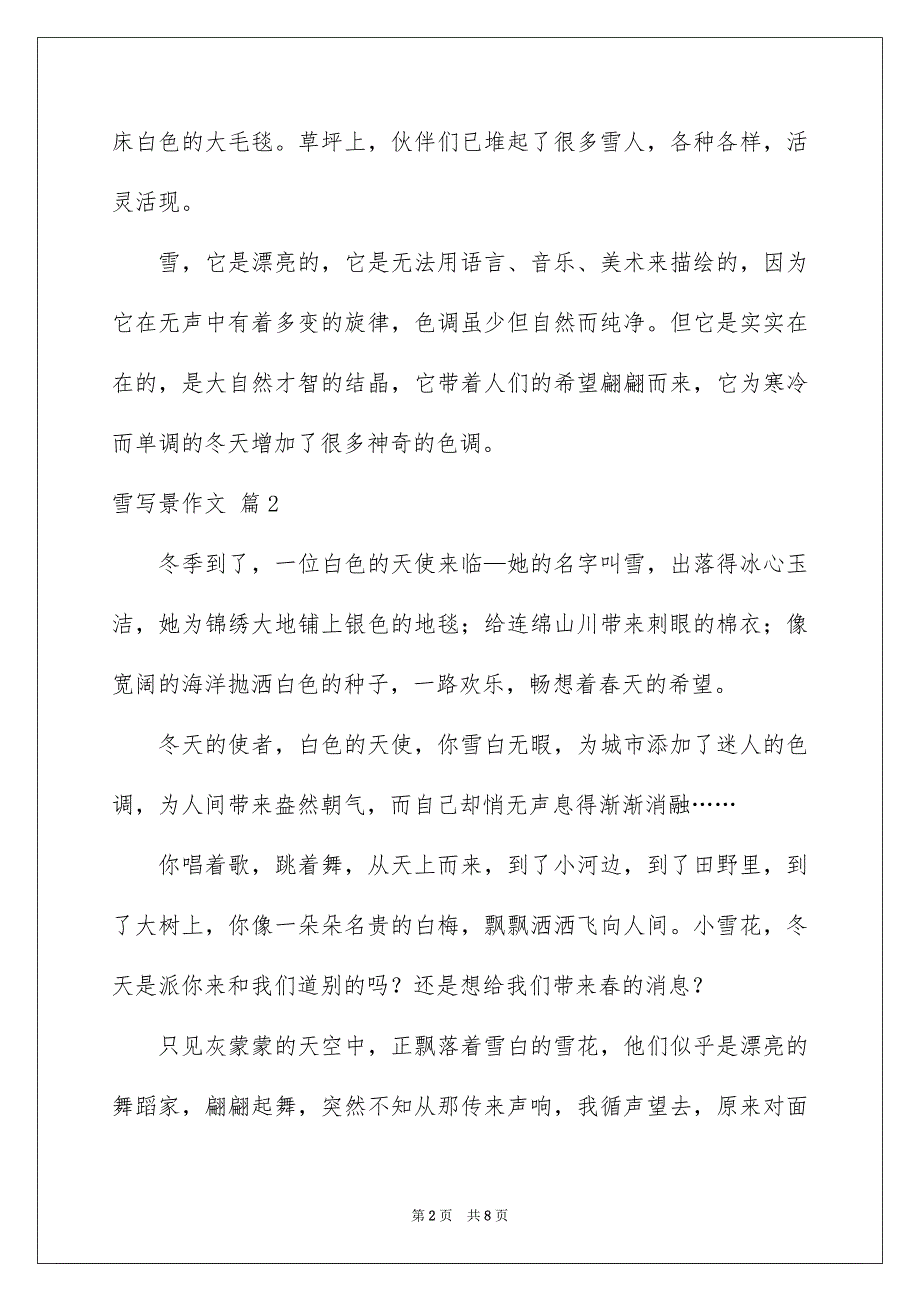 床白色的大毛毯。草坪上，伙伴们已堆起了很多雪人，各种各样，活
灵活现。
雪，它是漂亮的，它是无法用语言、音乐、美术来描绘的，因为
它在无声中有着多变的旋律，色调虽少但自然而纯净。但它是实实在
在的，是大自然才智的结晶，它带着人们的希望翩翩而来，它为寒冷
而单调的冬天增加了很多神奇的色调。
雪写景作文 篇2
冬季到了，一位白色的天使来临—她的名字叫雪，出落得冰心玉
洁，她为锦绣大地铺上银色的地毯；给连绵山川带来刺眼的棉衣；像
宽阔的海洋抛洒白色的种子，一路欢乐，畅想着春天的希望。
冬天的使者，白色的天使，你雪白无暇，为城市添加了迷人的色
调，为人间带来盎然朝气，而自己却悄无声息得渐渐消融……
你唱着歌，跳着舞，从天上而来，到了小河边，到了田野里，到
了大树上，你像一朵朵名贵的白梅，飘飘洒洒飞向人间。小雪花，冬
天是派你来和我们道别的吗？还是想给我们带来春的消息？
只见灰蒙蒙的天空中，正飘落着雪白的雪花，他们似乎是漂亮的
舞蹈家，翩翩起舞，突然不知从那传来声响，我循声望去，原来对面
第2页 共8页